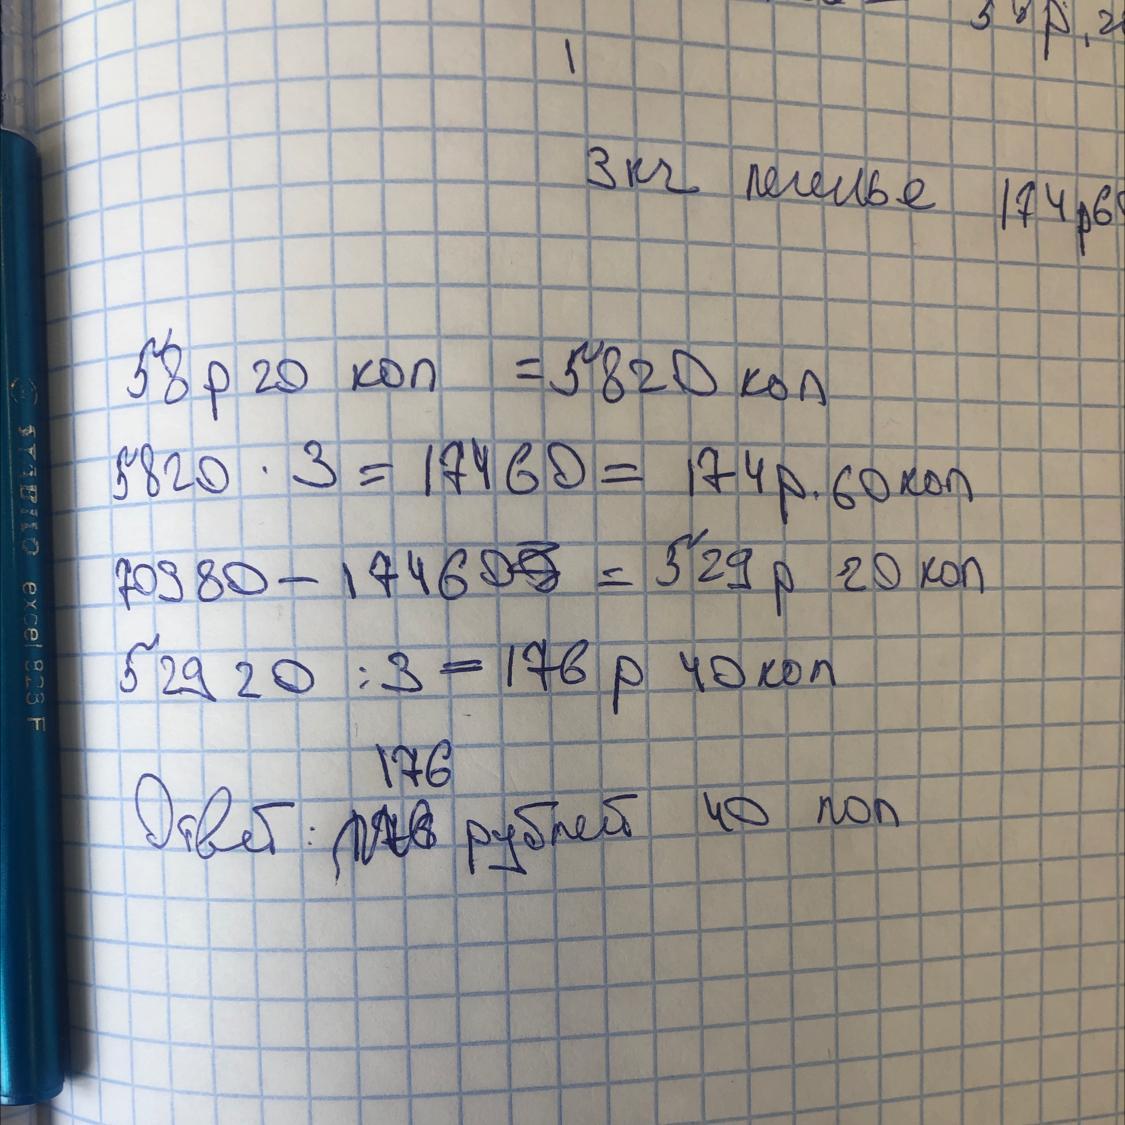 58р, 20
3 кг печенье 174р60
58р 20 коп = 5820 коп
5820 · 3 = 17460 = 174р. 60коп
70980 – 17460 = 529р 20 коп
52920 : 3 = 176 р 40коп
176
Ответ: рублей 40 коп
STABILO excel 828 F